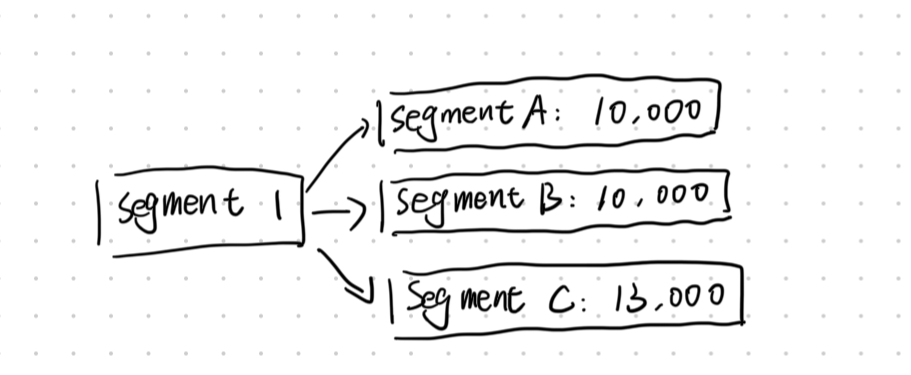 segment 1
segment A: 10,000
segment B: 10,000
segment C: 13,000